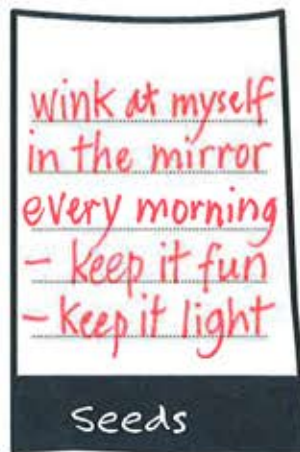 wink at myself
in the mirror
every morning
- keep it fun
- keep it light
Seeds